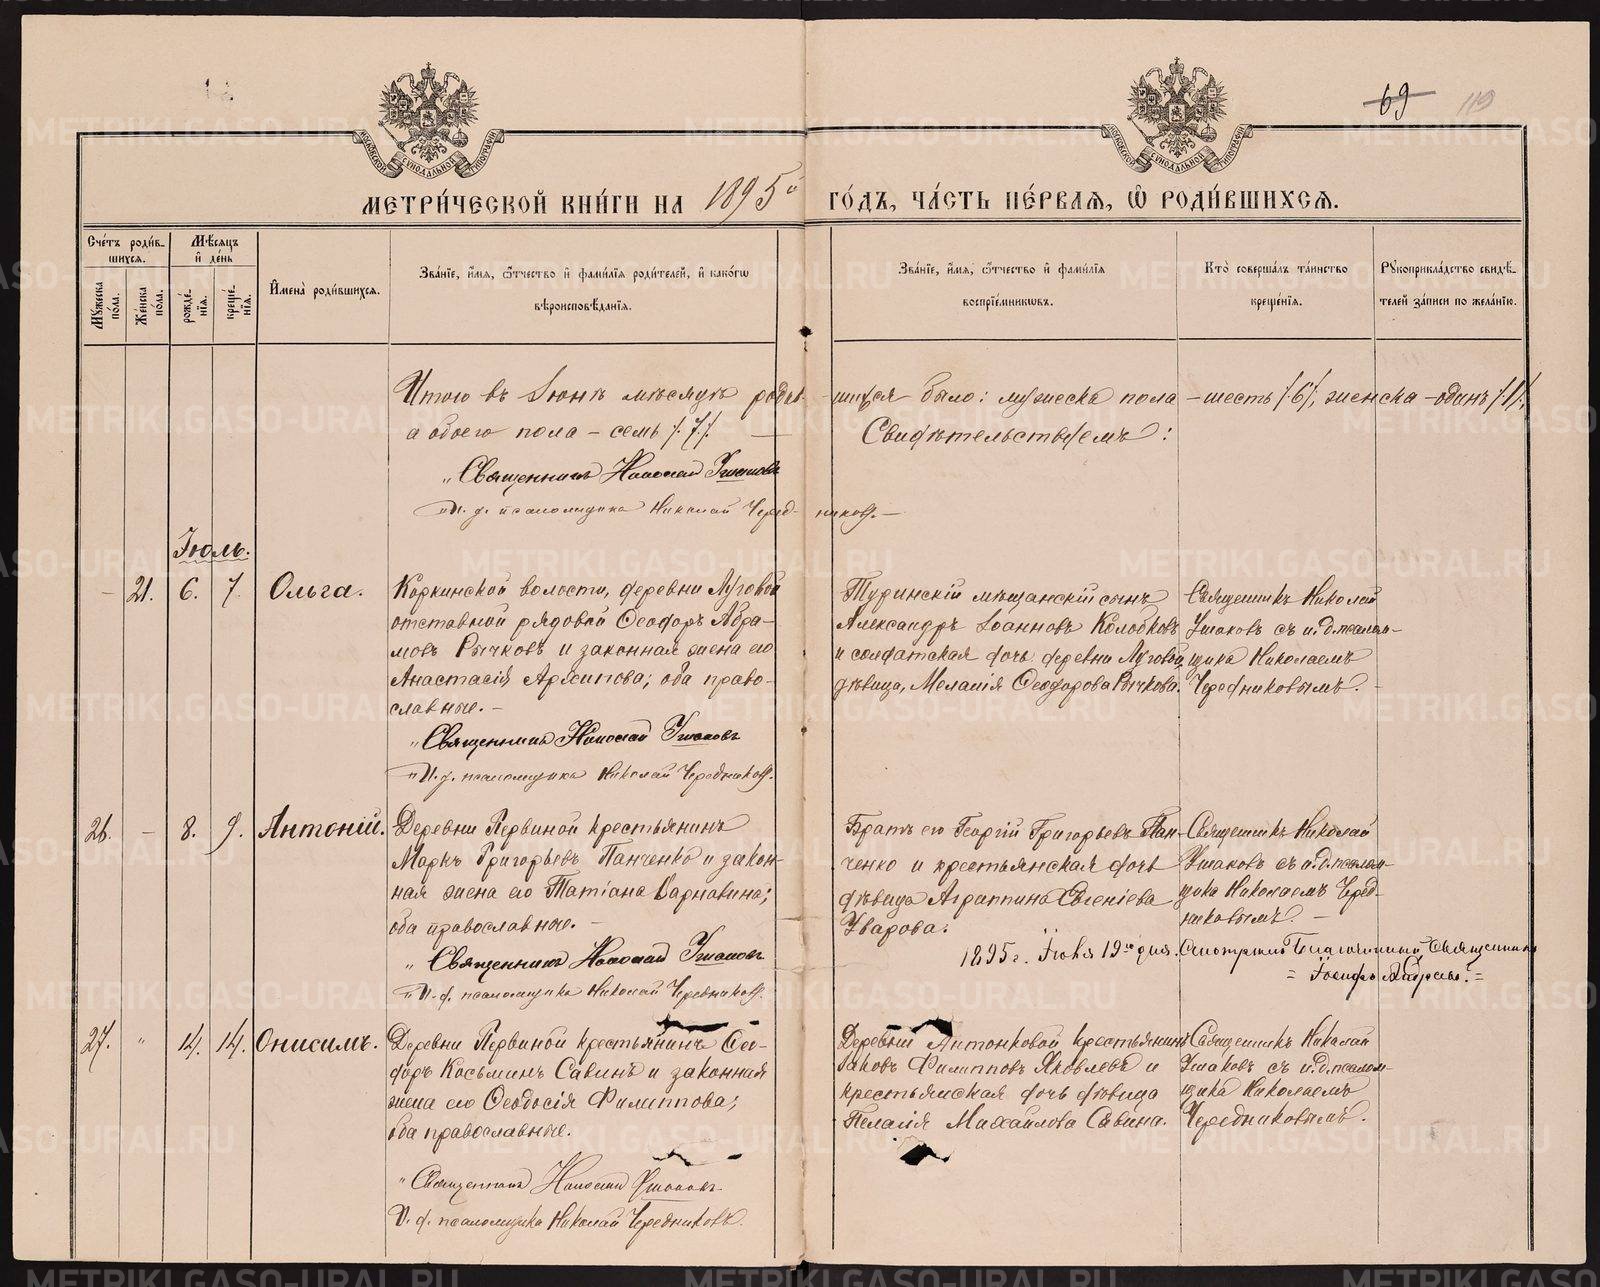 69 119
МОСКОВСКОЙ СУНОДАЛЬНОЙ ТИПОГРАФІИ
МОСКОВСКОЙ СУНОДАЛЬНОЙ ТИПОГРАФІИ
МЕТРИ́ЧЕСКОЙ КНИ́ГИ НА 1895й ГО́ДЪ, ЧА́СТЬ ПЕ́РВАЯ, Ѡ҆ РОДИ́ВШИХСЯ.
Сче́тъ роди́в-
шихся.
Мꙋжеска по́ла.
Же́нска по́ла.
Мѣ́сяцъ и҆ де́нь
рожде́-
нїя.
креще́-
нїя.
И҆мена̀ роди́вшихся.
Зва́нїе, и҆́мя, ѻ҆́тчество и҆ фами́лїя роди́телей, и҆ како́гѡ
вѣроисповѣ́данїя.
Зва́нїе, и҆́мя, ѻ҆́тчество и҆ фами́лїя
воспрїе́мникѡвъ.
Кто̀ соверша́лъ та́инство
креще́нїя.
Рꙋкоприкла́дство свидѣ́-
телей за́писи по жела́нїю.
Итого въ Іюнѣ мѣсяцѣ родив-шихся было: мужеска пола – шесть /6/, женска – одинъ /1/,
а обоего пола – семь /7/. Свидѣтельствуемъ:
„Священникъ Николай Ушаковъ
„И. д. псаломщика Николай Черед-никовъ. –
Іюль.
– 21. 6. 7. Ольга.
Коркинской волости, деревни Луговой
отставной рядовой Ѳеодоръ Абра-
мовъ Рычковъ и законная жена его
Анастасія Архипова; оба право-
славные. –
„Священникъ Николай Ушаковъ
„И. д. псаломщика Николай Чередниковъ.
Туринскій мѣщанскій сынъ
Александръ Іоанновъ Колобковъ
и солдатская дочь деревни Луговой
дѣвица, Меланія Ѳеодорова Рычкова.
Священникъ Николай
Ушаковъ съ и. д. псалом-
щика Николаемъ
Чередниковымъ. –
26. – 8. 9. Антоній.
Деревни Первиной крестьянинъ
Маркъ Григорьевъ Панченко и закон-
ная жена его Татіана Варнавина;
оба православные. –
„Священникъ Николай Ушаковъ
„И. д. псаломщика Николай Чередниковъ.
Братъ его Георгій Григорьевъ Пан-
ченко и крестьянская дочь
дѣвица Агриппина Евгеніева
Уварова.
Священникъ Николай
Ушаковъ съ и. д. псалом-
щика Николаемъ Черед-
никовымъ. –
1895 г. Іюля 19го дня. Смотрѣлъ Благочинный Священникъ
= Іосифъ =
27. „ 14. 14. Онисимъ.
Деревни Первиной крестьянинъ Ѳео-
доръ Косьминъ Савинъ и законная
жена его Ѳеодосія Филиппова;
оба православные.
„Священникъ Николай Ушаковъ
И. д. псаломщика Николай Чередниковъ.
Деревни Антонковой крестьянинъ
Іаковъ Филипповъ Яковлевъ и
крестьянская дочь дѣвица
Пелагія Михайлова Савина.
Священникъ Николай
Ушаковъ съ и. д. псалом-
щика Николаемъ
Чередниковымъ.
METRIKI.GASO-URAL.RU